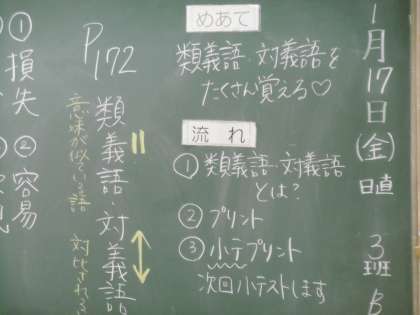 1月17日(金)日直 3班
めあて
類義語・対義語を
たくさん覚える♡
流れ
①類義語・対義語
とは？
②プリント
③小テプリント
次回小テストします
P172
類義語・対義語
意味が似ている語 対比される
①損失 ②容易